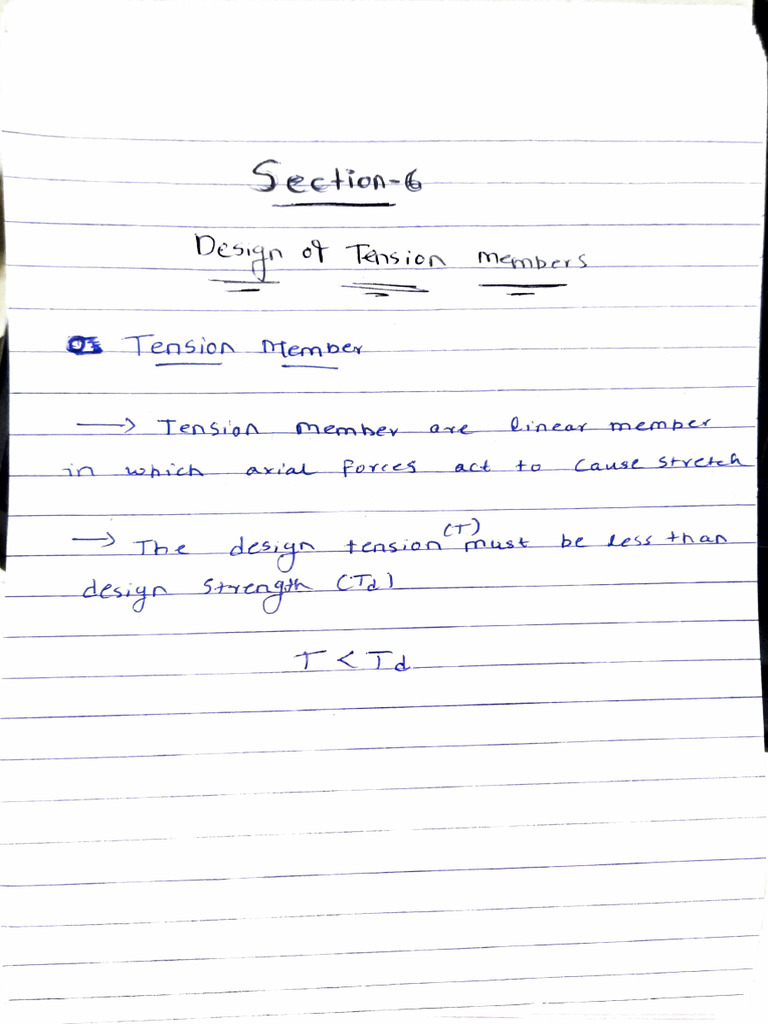 Section-6
Design of Tension members
Tension Member
→ Tension member are linear member
in which axial forces act to cause stretch
→ The design tension (T) must be less than
design strength (Td)
T < Td